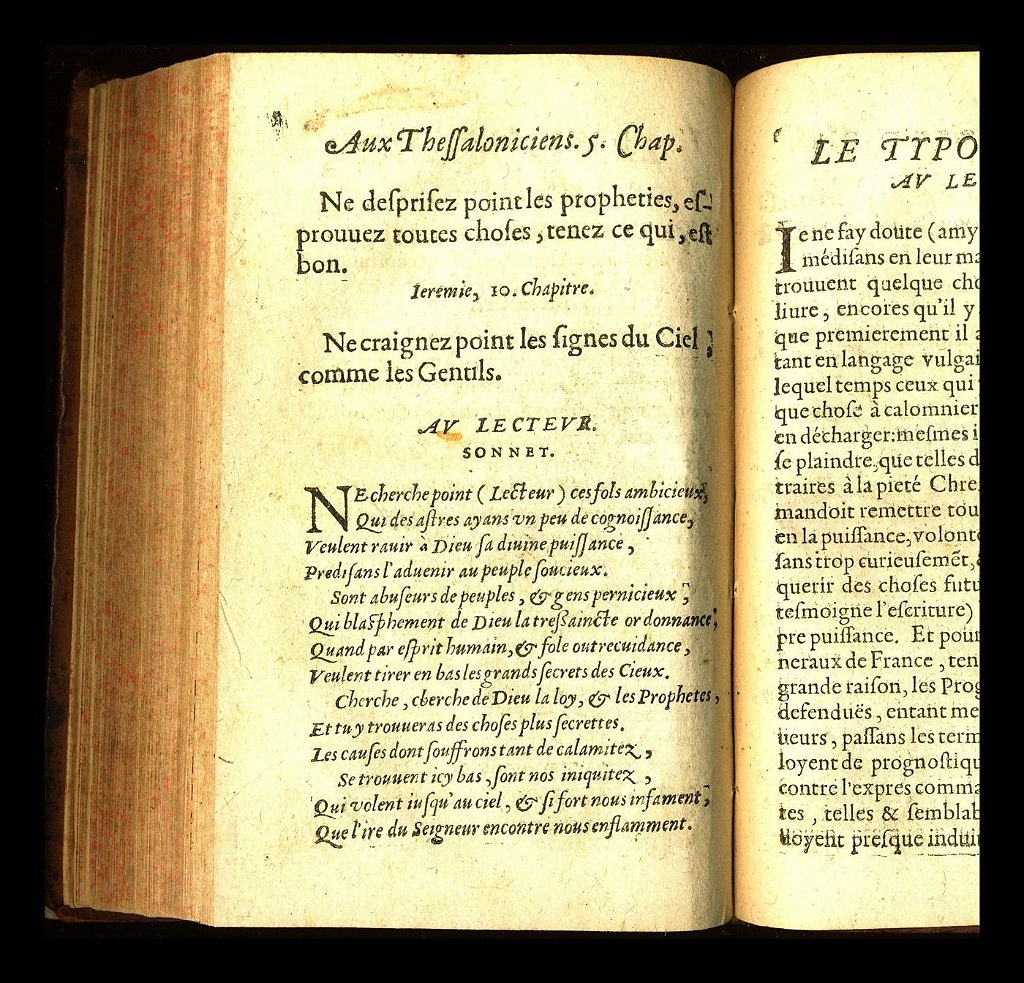 Aux Theſſaloniciens. 5. Chap.
Ne deſpriſez point les propheties, eſ-
prouuez toutes choſes, tenez ce qui, eſt
bon.
Ieremie, 10. Chapitre.
Ne craignez point les ſignes du Ciel ;
comme les Gentils.
AV LECTEVR.
SONNET.
NE cherche point (Lecteur) ces fols ambicieux,
Qui des aſtres ayans vn peu de cognoiſſance,
Veulent rauir à Dieu ſa diuine puiſſance,
Prediſans l'aduenir au peuple ſoucieux.
Sont abuſeurs de peuples, & gens pernicieux ;
Qui blaſphement de Dieu la treſſaincte ordonnance,
Quand par eſprit humain, & fole outrecuidance,
Veulent tirer en bas les grands ſecrets des Cieux.
Cherche, cherche de Dieu la loy, & les Prophetes,
Et tu y trouueras des choſes plus ſecrettes.
Les cauſes dont ſouffrons tant de calamitez,
Se trouuent icy bas, ſont nos iniquitez,
Qui volent iuſqu'au ciel, & ſi fort nous infament,
Que l'ire du Seigneur encontre nous enflamment.
LE TYPO
AV LE
Ie ne fay doute (amy
médiſans en leur ma
trouuent quelque cho
liure, encores qu'il y
que premierement il a
tant en langage vulgai
lequel temps ceux qui
que choſe à calomnier
en décharger: meſmes i
ſe plaindre, que telles d
traires à la pieté Chre
mandoit remettre tou
en la puiſſance, volont
ſans trop curieuſemẽt,
querir des choſes futu
teſmoigne l'eſcriture)
pre puiſſance. Et pour
neraux de France, ten
grande raiſon, les Prog
defenduës, entant me
ueurs, paſſans les term
loyent de prognoſtiqu
contre l'expres comma
tes, telles & ſemblab
uoyent preſque indui